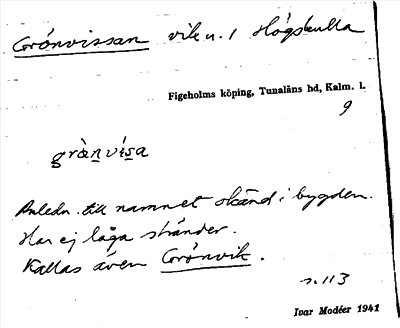 Grönvissan vik u. 1 Högskulla
Figeholms köping, Tunaläns hd, Kalm. l.
9
grὰn víṣa
Anledn. till namnet okänd i bygden.
Har ej låga stränder.
Kallas även Grönvik.
s. 113
Ivar Modéer 1941